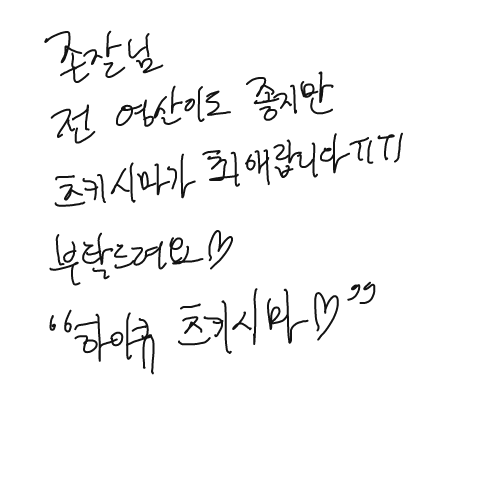 존잘님
전 영산이도 좋지만
츠키시마가 최애랍니다ㅠㅠ
부탁드려요♡
“하이큐 츠키시마♡”